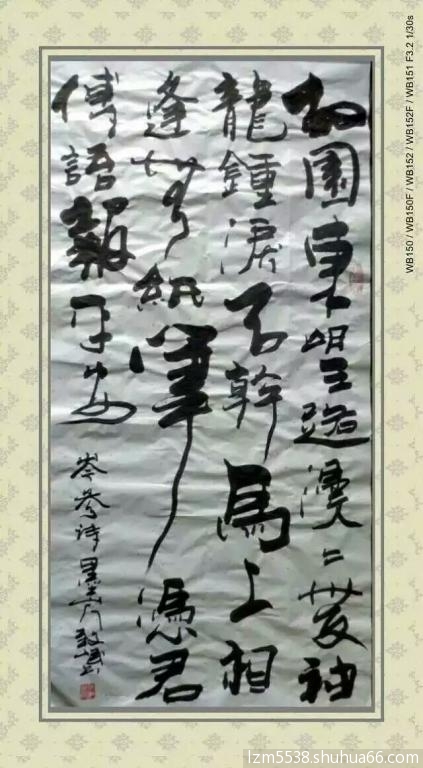 故園東望路漫〻雙袖
龍鍾淚不幹馬上相
逢無紙筆憑君
傳語報平安
岑参诗
WB150 / WB150F / WB152 / WB152F / WB151 F3.2 1/30s
lzm5538.shuhua66.com